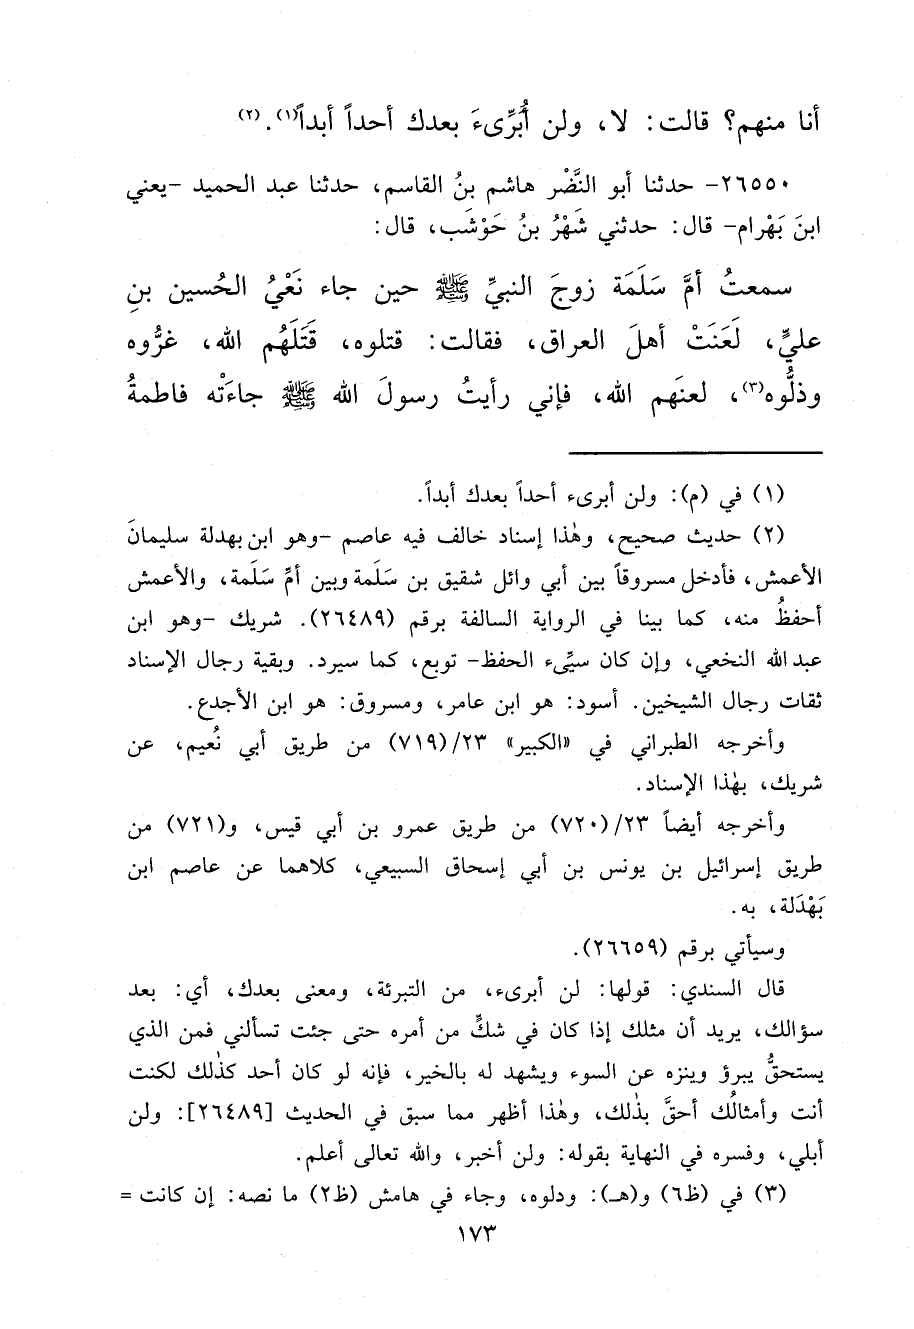 أنا منهم؟ قالت: لا، ولن أُبَرِّىءَ بعدك أحداً أبداً(١). (٢)
٢٦٥٥٠- حدثنا أبو النَّضْر هاشم بنُ القاسم، حدثنا عبد الحميد -يعني
ابنَ بَهْرام- قال: حدثني شَهْرُ بنُ حَوْشَب، قال:
سمعتُ أمَّ سَلَمَة زوجَ النبيِّ ﷺ حين جاء نَعْيُ الحُسين بنِ
عليٍّ، لَعَنَتْ أهلَ العراق، فقالت: قتلوه، قَتَلَهُم الله، غرُّوه
وذلُّوه(٣)، لعنَهم الله، فإني رأيتُ رسولَ الله ﷺ جاءَتْه فاطمةُ
(١) في (م): ولن أبرىء أحداً بعدك أبداً.
(٢) حديث صحيح، وهٰذا إسناد خالف فيه عاصم -وهو ابن بهدلة سليمانَ
الأعمش، فأدخل مسروقاً بين أبي وائل شقيق بن سَلَمة وبين أمِّ سَلَمة، والأعمش
أحفظُ منه، كما بينا في الرواية السالفة برقم (٢٦٤٨٩). شريك -وهو ابن
عبد الله النخعي، وإن كان سيِّىء الحفظ- توبع، كما سيرد. وبقية رجال الإسناد
ثقات رجال الشيخين. أسود: هو ابن عامر، ومسروق: هو ابن الأجدع.
وأخرجه الطبراني في «الكبير» ٢٣/(٧١٩) من طريق أبي نُعيم، عن
شريك، بهٰذا الإسناد.
وأخرجه أيضاً ٢٣/(٧٢٠) من طريق عمرو بن أبي قيس، و(٧٢١) من
طريق إسرائيل بن يونس بن أبي إسحاق السبيعي، كلاهما عن عاصم ابن
بَهْدَلة، به.
وسيأتي برقم (٢٦٦٥٩).
قال السندي: قولها: لن أبرىء، من التبرئة، ومعنى بعدك، أي: بعد
سؤالك، يريد أن مثلك إذا كان في شكٍّ من أمره حتى جئت تسألني فمن الذي
يستحقُّ يبرؤ وينزه عن السوء ويشهد له بالخير، فإنه لو كان أحد كذٰلك لكنت
أنت وأمثالُك أحقَّ بذٰلك، وهٰذا أظهر مما سبق في الحديث [٢٦٤٨٩]: ولن
أبلي، وفسره في النهاية بقوله: ولن أخبر، والله تعالى أعلم.
(٣) في (ظ٦) و(هـ): ودلوه، وجاء في هامش (ظ٢) ما نصه: إن كانت =
١٧٣